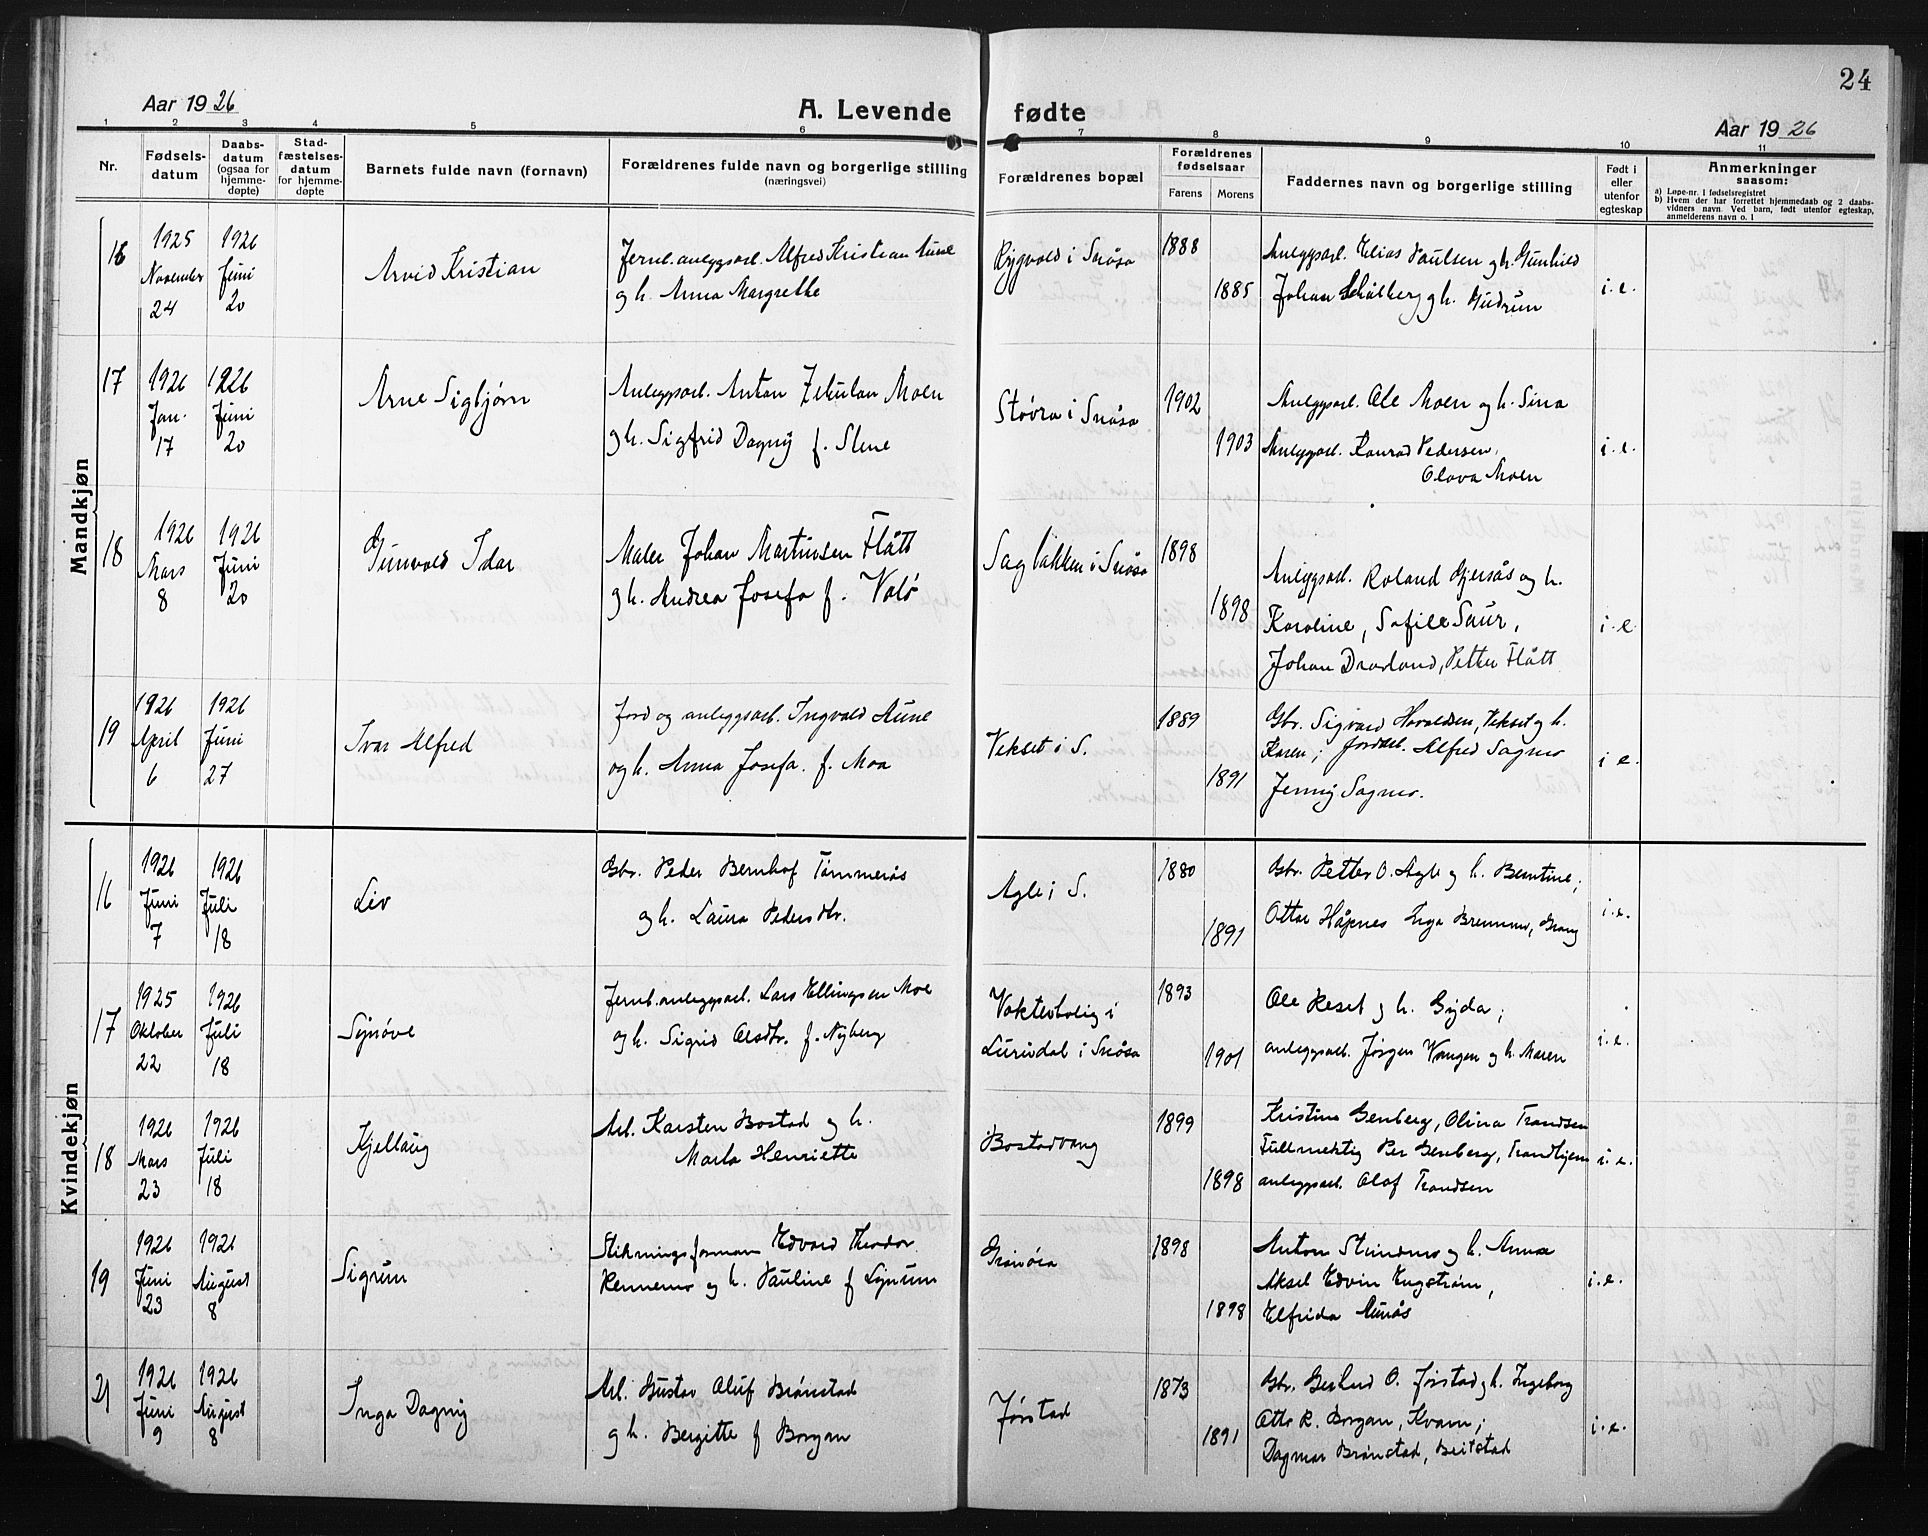 24
Aar 1926
A. Levende fødte
Aar 1926
1 2 3 4 5 6 7 8 9 10 11
Nr.
Fødsels-
datum
Daabs-
datum
(ogsaa for
hjemme-
døpte)
Stad-
fæstelses-
datum
for hjemme-
døpte
Barnets fulde navn (fornavn)
Forældrenes fulde navn og borgerlige stilling
(næringsvei)
Forældrenes bopæl
Forældrenes
fødselsaar
Farens Morens
Faddernes navn og borgerlige stilling
Født i
eller
utenfor
egteskap
Anmerkninger
saasom:
a) Løpe-nr. i fødselsregistret
b) Hvem der har forrettet hjemmedaab og 2 daabs-
vidners navn. Ved barn, født utenfor egteskap,
anmelderens navn o. l
Mandkjøn
16
1925
November
24
1926
Juni
20
Arvid Kristian
Jernb.anleggsarb. Alfred Kristian Aune
og h. Anna Margrethe
i Snåsa
1888
1885
Anleggsarb. Elias Paulsen og h. Gunhild
Johan og h. Gudrun
i. e.
17
1926
Jan.
17
1926
Juni
20
Arne Sigbjørn
Anleggsarb. Anton Moen
og h. Sigfrid Dagny f. Slene
Støvra i Snåsa
1902
1903
Anleggsarb. Ole Moen og h. Sina
Anleggsarb. Konrad Pedersen,
Olava Moen
i. e.
18
1926
Mars
8
1926
Juni
20
Gunvald Idar
Maler Johan Martinsen Flått
og h. Andrea Josefa f. Valø
Sagbakken i Snåsa
1898
1898
Anleggsarb. Roland og h.
Karoline, Saur,
Johan Dravland, Petter Flått
i. e.
19
1926
April
6
1926
Juni
27
Ivar Alfred
Jord og anleggsarb. Ingvald Aune
og h. Anna Josefa. f. Moa
Vekset i S.
1889
1891
Gbr. Sigvard Haraldsen, Vekset og h.
Karen; Jordarb. Alfred Sagmo
Jenny Sagmo.
i e.
Kvindekjøn
16
1926
Juni
7
1926
Juli
18
Liv
Gbr. Peder Bernhof Tømmerås
og h. Laura Pedersdtr.
Agle i S.
1880
1891
Gbr. Petter O. Agle og h. Berntine;
Ottar Håpnes Inga Bremmo, Grong
i. e.
17
1925
Oktober
22
1926
Juli
18
Synøve
Jernb.anleggsarb. Lars Ellingsen Moe
og h. Sigrid Olsdtr. f. Nyberg
Vokterbolig i
Lurudal i Snåsa
1893
1901
Ole Reset og h. Gyda;
anleggsarb. Jørgen Vangen og h. Maren
i. e.
18
1926
Mars
23
1926
Juli
18
Kjellaug
Arb. Karsten Bostad og h.
Marta Henriette
Bostadvang
1899
1898
Kristine Genberg, Olina Trondsen
Fullmektig Per Genberg, Trondhjem
anleggsarb. Olaf Trondsen
i. e.
19
1926
Juni
23
1926
August
8
Sigrun
Stikningsformann Edvard Theodor
Rennemo og h. Pauline f Lynum
Grønøra
1898
1898
Anton og h. Anna
Aksel Edvin Engstrøm,
Elfrida Aunås
i. e.
21
1926
Juni
9
1926
August
8
Inga Dagny
Arb. Gustav Oluf Brønstad
og h. Bergitte f Borgan
Jørstad
1873
1891
Gbr. Gerhard O. Jørstad og h. Ingeborg
Otto R. Borgan, Kvam;
Dagmar Brønstad, Beitstad
i. e.